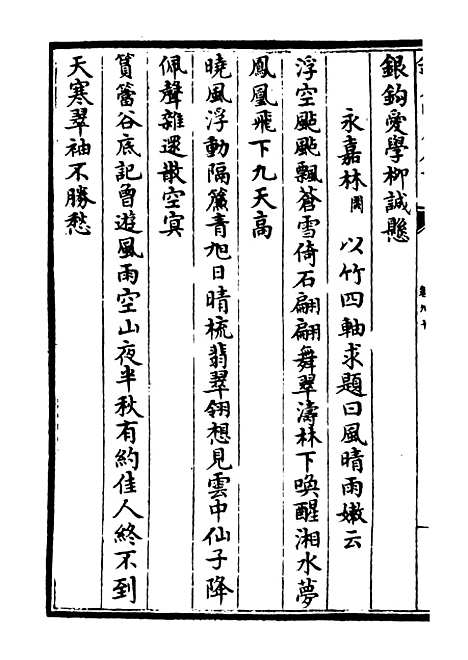 銀鉤愛學柳誠懸
永嘉林閎以竹四軸求題曰風晴雨嫩云
浮空颭颭飄蒼雪倚石翩翩舞翠濤林下喚醒湘水夢
鳳凰飛下九天高
曉風浮動隔簾青旭日晴梳翡翠翎想見雲中仙子降
佩聲雜遝散空冥
篔簹谷底記曾遊風雨空山夜半秋有約佳人終不到
天寒翠袖不勝愁